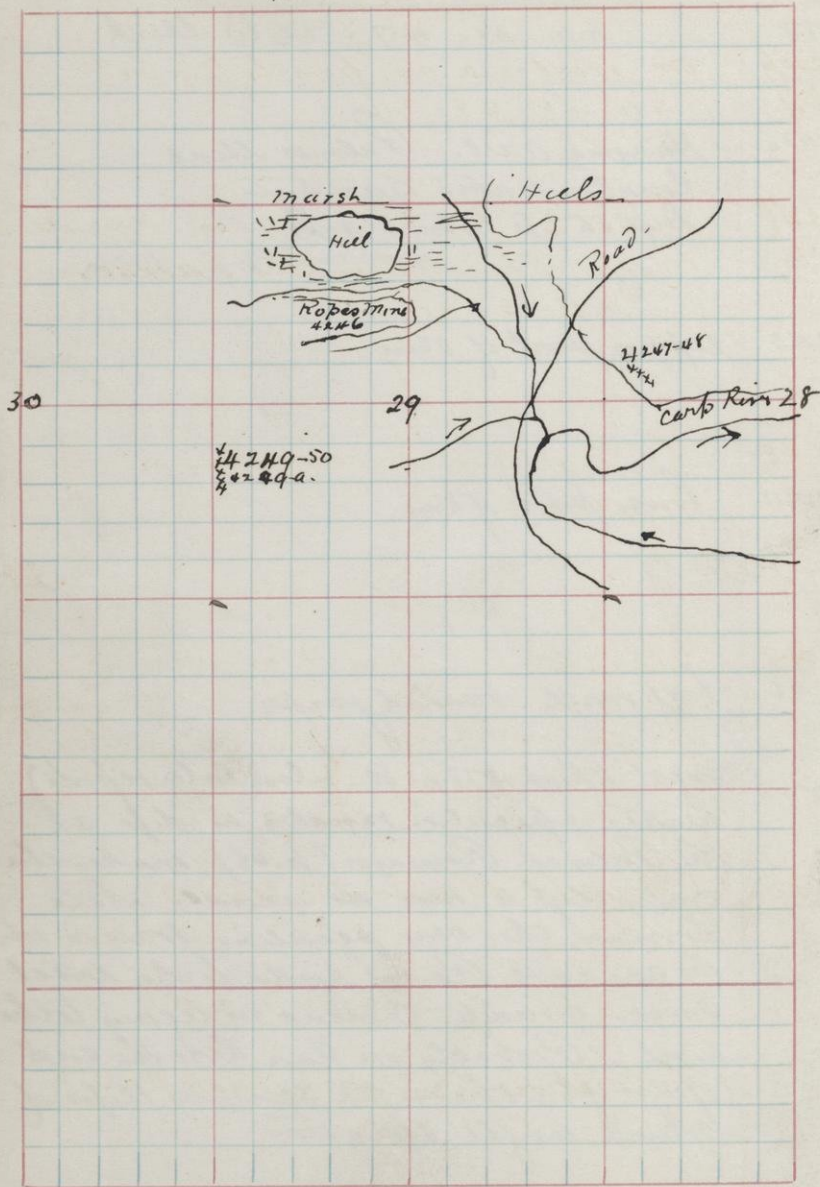 Marsh
Hills
Hill
Road
Ropes Mine
4246
4247-48
30
29
Carp River 28
4249-50
4249-a.